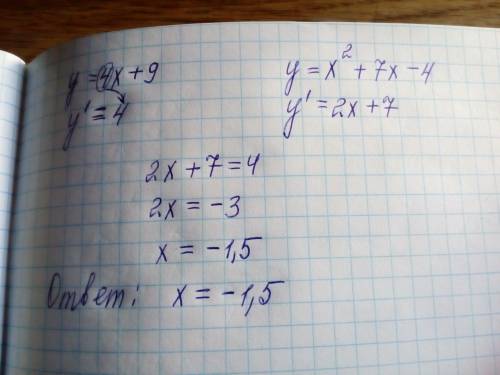 y = 4x + 9
y' = 4
y = x² + 7x - 4
y' = 2x + 7
2x + 7 = 4
2x = -3
x = -1,5
Ответ: x = -1,5